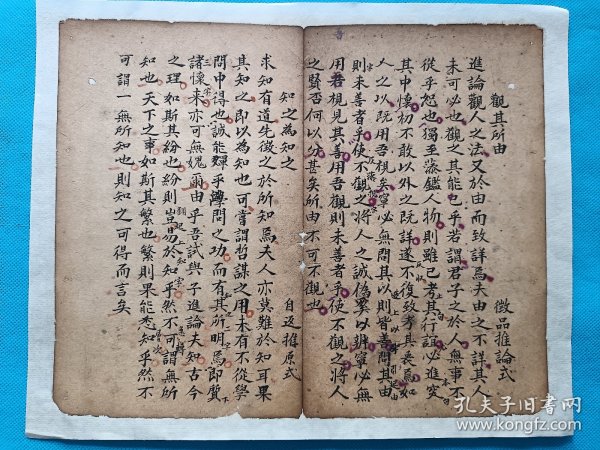 觀其所由 徵品推論式
進論觀人之法又於由而致詳焉夫由之不詳其人
未可必也觀之其能已乎若謂君子之於人無事不
從乎恕也獨至藻鑑人物則雖已考其行誼必進究
其中懷初不敢以外之既詳遂不復致考其衷焉如
人之以既用吾視矣寧必無問其以則皆善問其由
則未善者乎使不觀之將人之誠偽奚以辨寧必無
用吾視見其善用吾觀則未善者乎使不觀之將人
之賢否何以分甚矣所由不可不觀也
知之為知之 自返推原式
求知有道先從之於所知焉夫人亦莫難於知耳果
其知之即以為知也可嘗謂哲謀之用未有不從學
問中得也誠能殫乎溥問之功而有其所明焉即質
諸懷來亦可無愧爾由乎吾試與子進論夫知古今
之理如斯其紛也紛則豈易於知乎然不可謂無所
知也天下之事如斯其繁也繁則果能悉知乎然不
可謂一無所知也則知之可得而言矣
孔夫子旧书网
www.kongfz.com